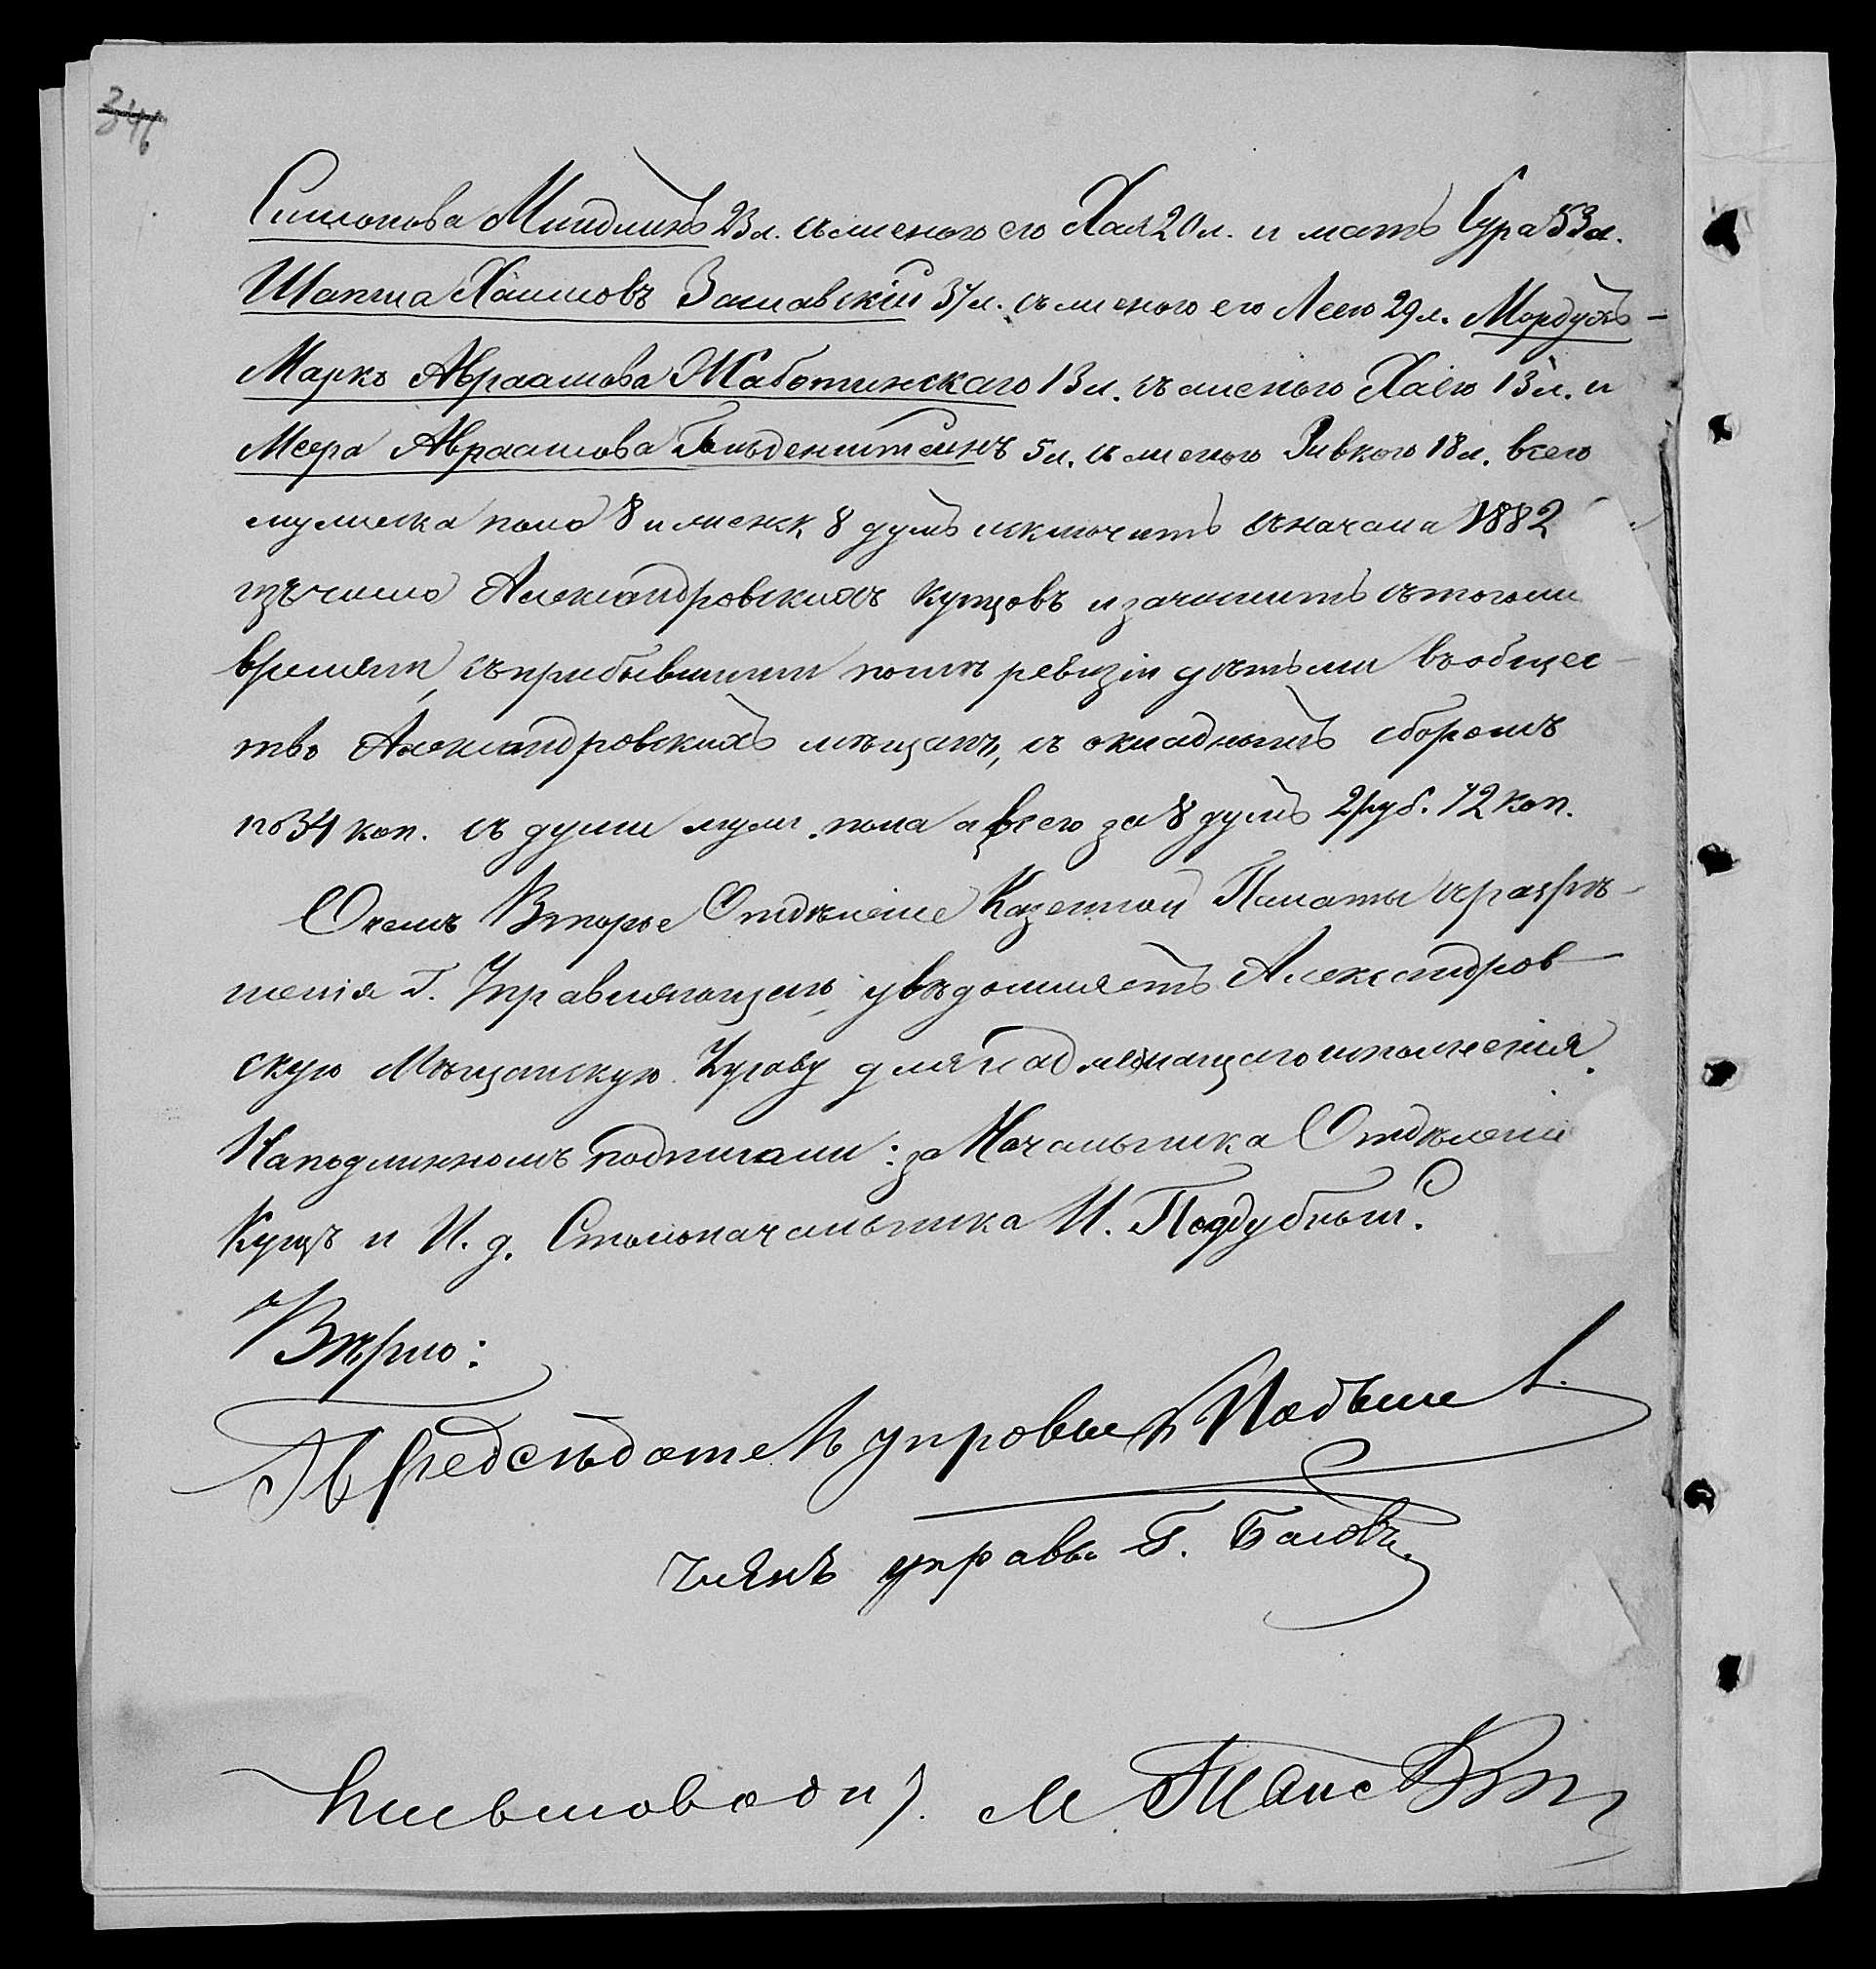 346
Симонова Миндлинъ 23 л. съ женою его Хая 20 л. и мать Сура 53 л.
Шапша Хаимовъ Заславскій 37 л. съ женою его Леею 29 л. Мордухъ-
Марко Авраамова Жаботинскаго 13 л. съ женою Хаею 13 л. и
Меера Авраамова Гольденштейнъ 5 л. съ женою Ривкою 18 л. всего
мужеска пола 8 и женск 8 душъ исключить съ начала 1882
изъ числа Александровскихъ купцовъ и зачислить съ того же
времени, съ прибывшими послѣ ревизіи дѣтьми въ общес-
тво Александровскихъ мѣщанъ, съ окладнымъ сборомъ
по 34 коп. съ души муж. пола а всего за 8 душъ 2 руб. 72 коп.
О чемъ Второе Отдѣленіе Казенной Палаты съ разрѣ-
шенія Г. Управляющаго, увѣдомляетъ Александров-
скую Мѣщанскую Управу для надлежащаго исполненія.
На подлинномъ подписали: за Начальника Отдѣленія
Купцъ и И. д. Столоначальника И. Поддубный.
Вѣрно:
Предсѣдатель управы
членъ управы Г. Баловъ
Письмоводит. М.